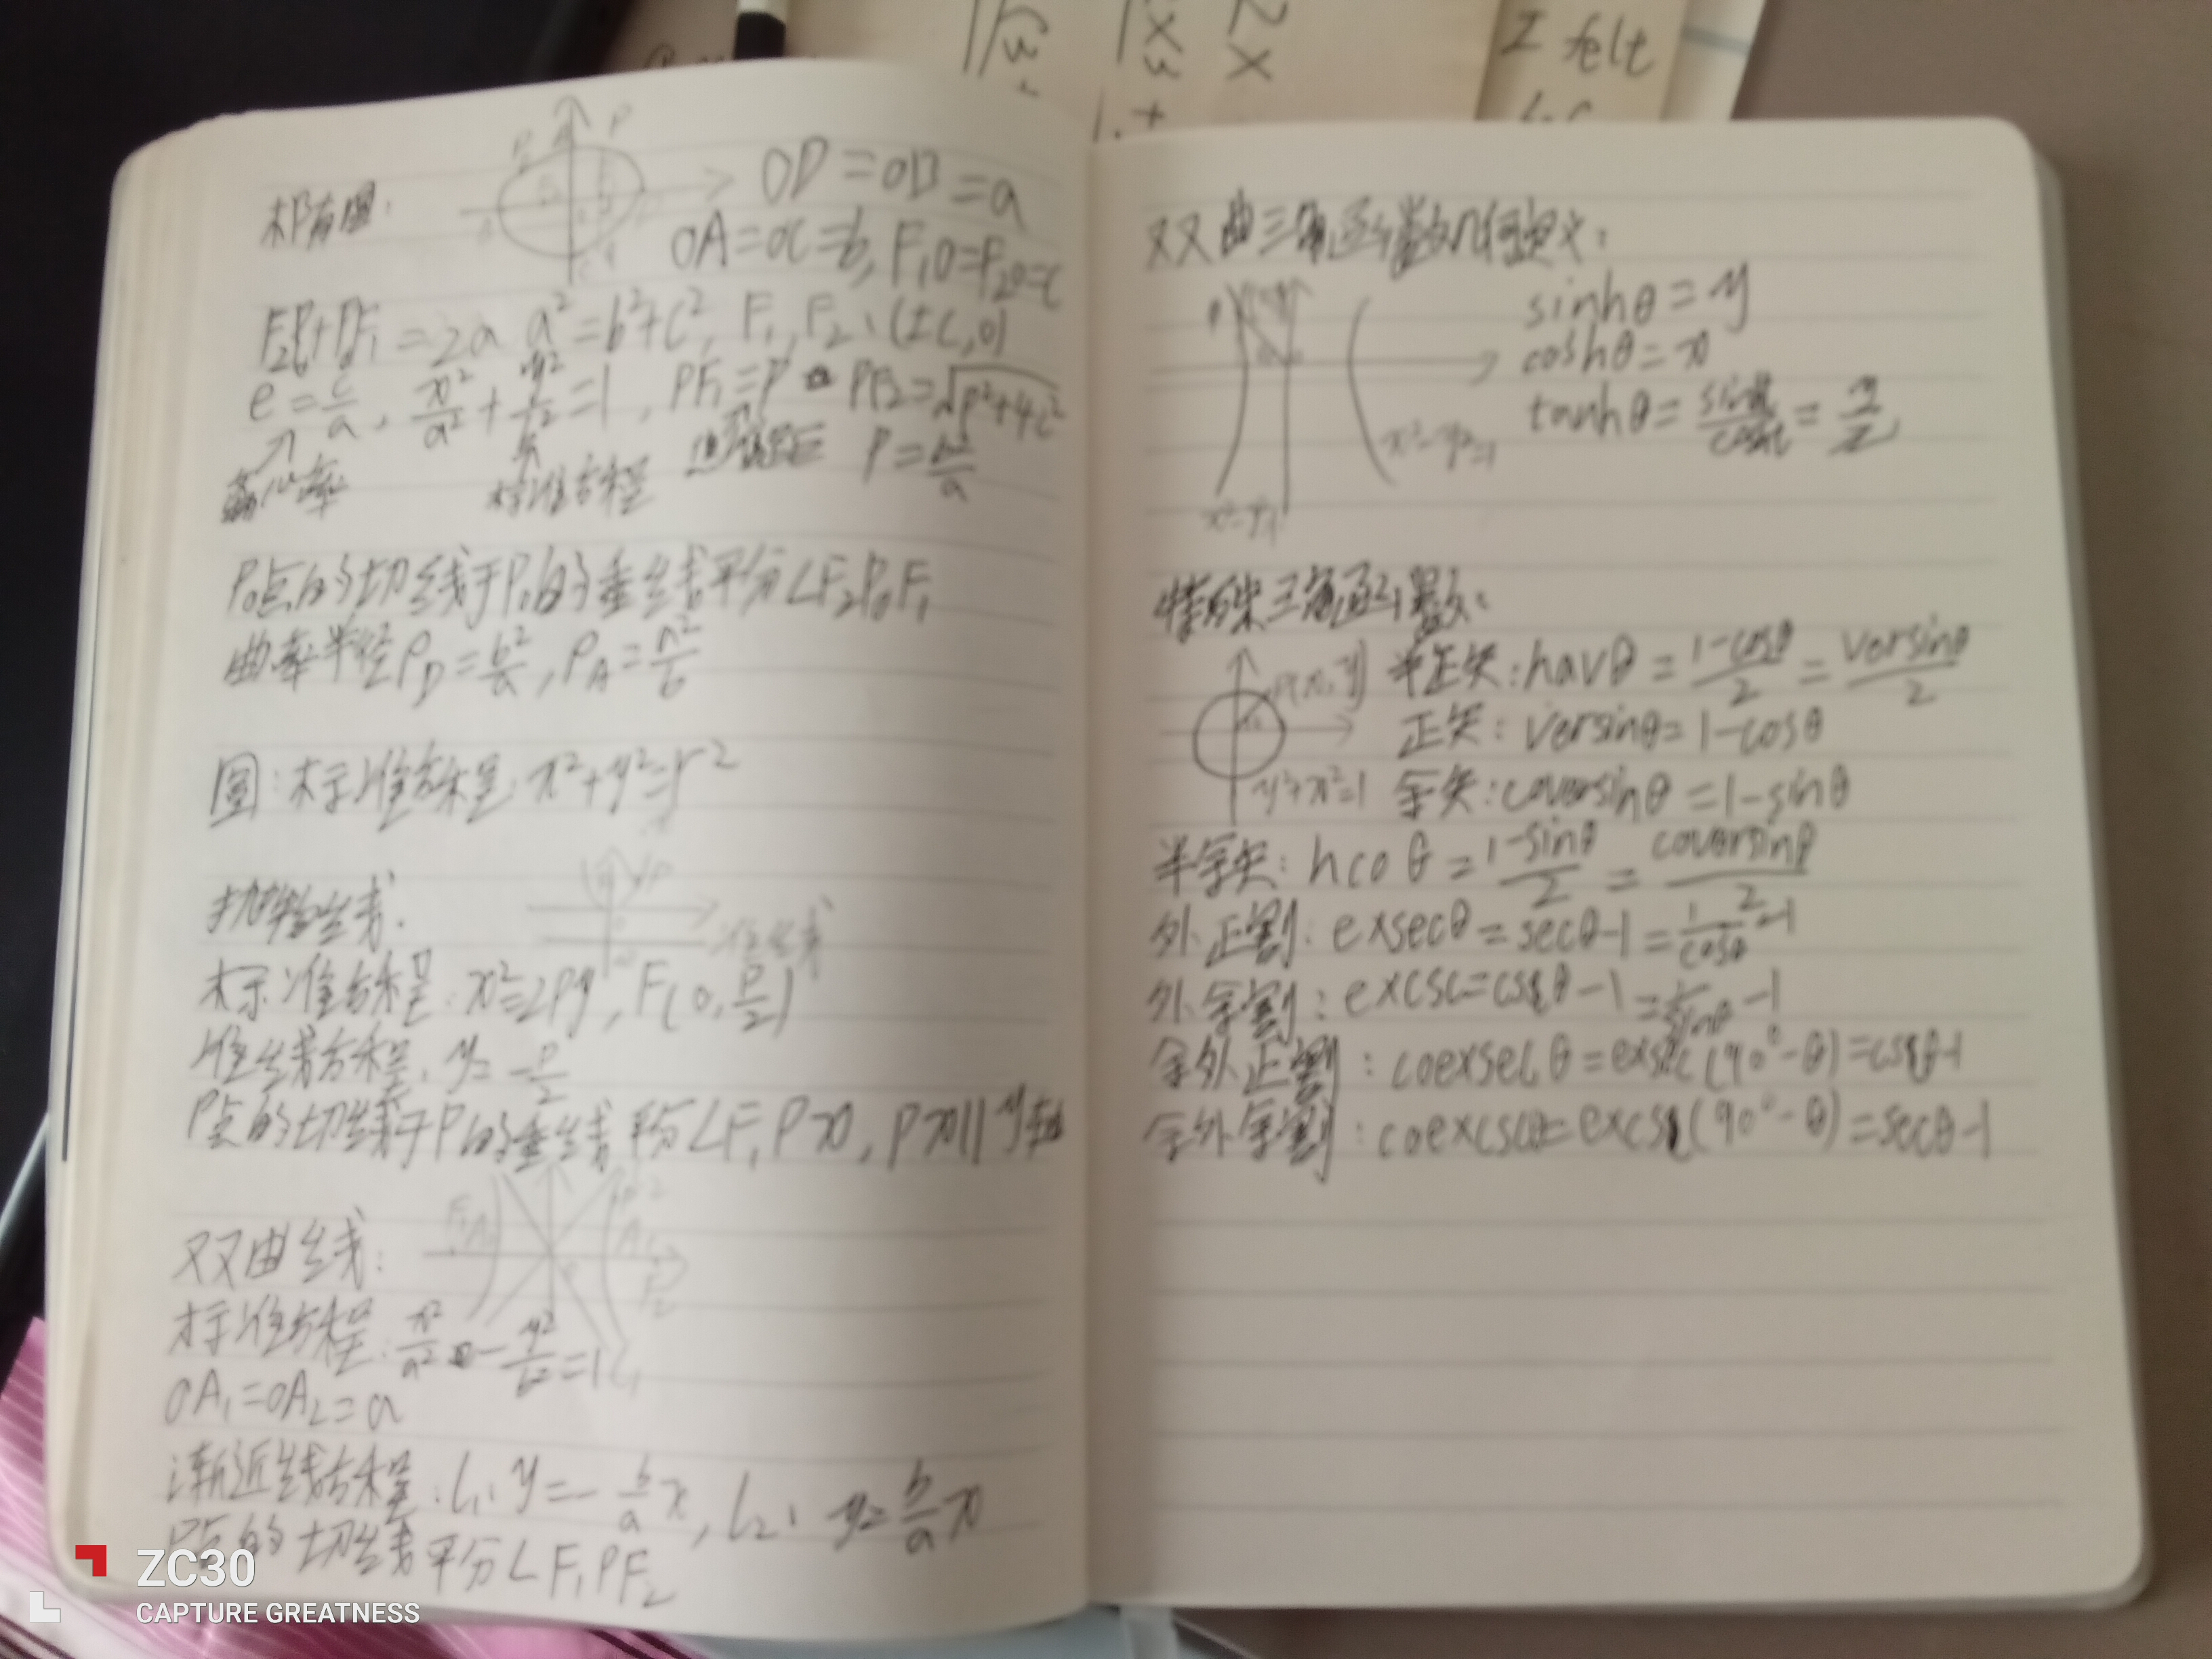 I felt
椭圆:
OD=OB=a
OA=OC=b, F₁O=F₂O=c
F₂P₀+P₀F₁=2a a²=b²+c², F₁, F₂: (±c,0)
e=c/a, x²/a²+y²/b²=1, PF₁=P PF₂=√(P²+4c²)
离心率 标准方程 P=b²/a
P₀点的切线于P₀的垂线平分∠F₂P₀F₁
曲率半径ρ_D=b²/a, ρ_A=a²/b
圆:标准方程:x²+y²=r²
抛物线:
准线
标准方程:x²=2Py, F(0, P/2)
准线方程: y=-P/2
P点的切线于P的垂线平分∠F₁Px, Px||y轴
双曲线:
F₁ A₁ A₂ F₂
标准方程:x²/a²-y²/b²=1
OA₁=OA₂=a
渐近线方程:l₁:y=-b/a x, l₂: y=b/a x
P点的切线平分∠F₁PF₂
ZC30
CAPTURE GREATNESS
双曲三角函数几何定义:
sinhθ=y
coshθ=x
tanhθ=sinh/cosh=y/x
x²-y²=1
x²-y²=1
特殊三角函数:
P(x,y) 半正矢:havθ=(1-cosθ)/2=versinθ/2
正矢:versinθ=1-cosθ
y²+x²=1 余矢:coversinθ=1-sinθ
半余矢:hcoθ=(1-sinθ)/2=coversinθ/2
外正割:exsecθ=secθ-1=1/cosθ-1
外余割:excsc=cscθ-1=1/sinθ-1
余外正割:coexsecθ=exsec(90°-θ)=cscθ-1
余外余割:coexcscθ=excsc(90°-θ)=secθ-1